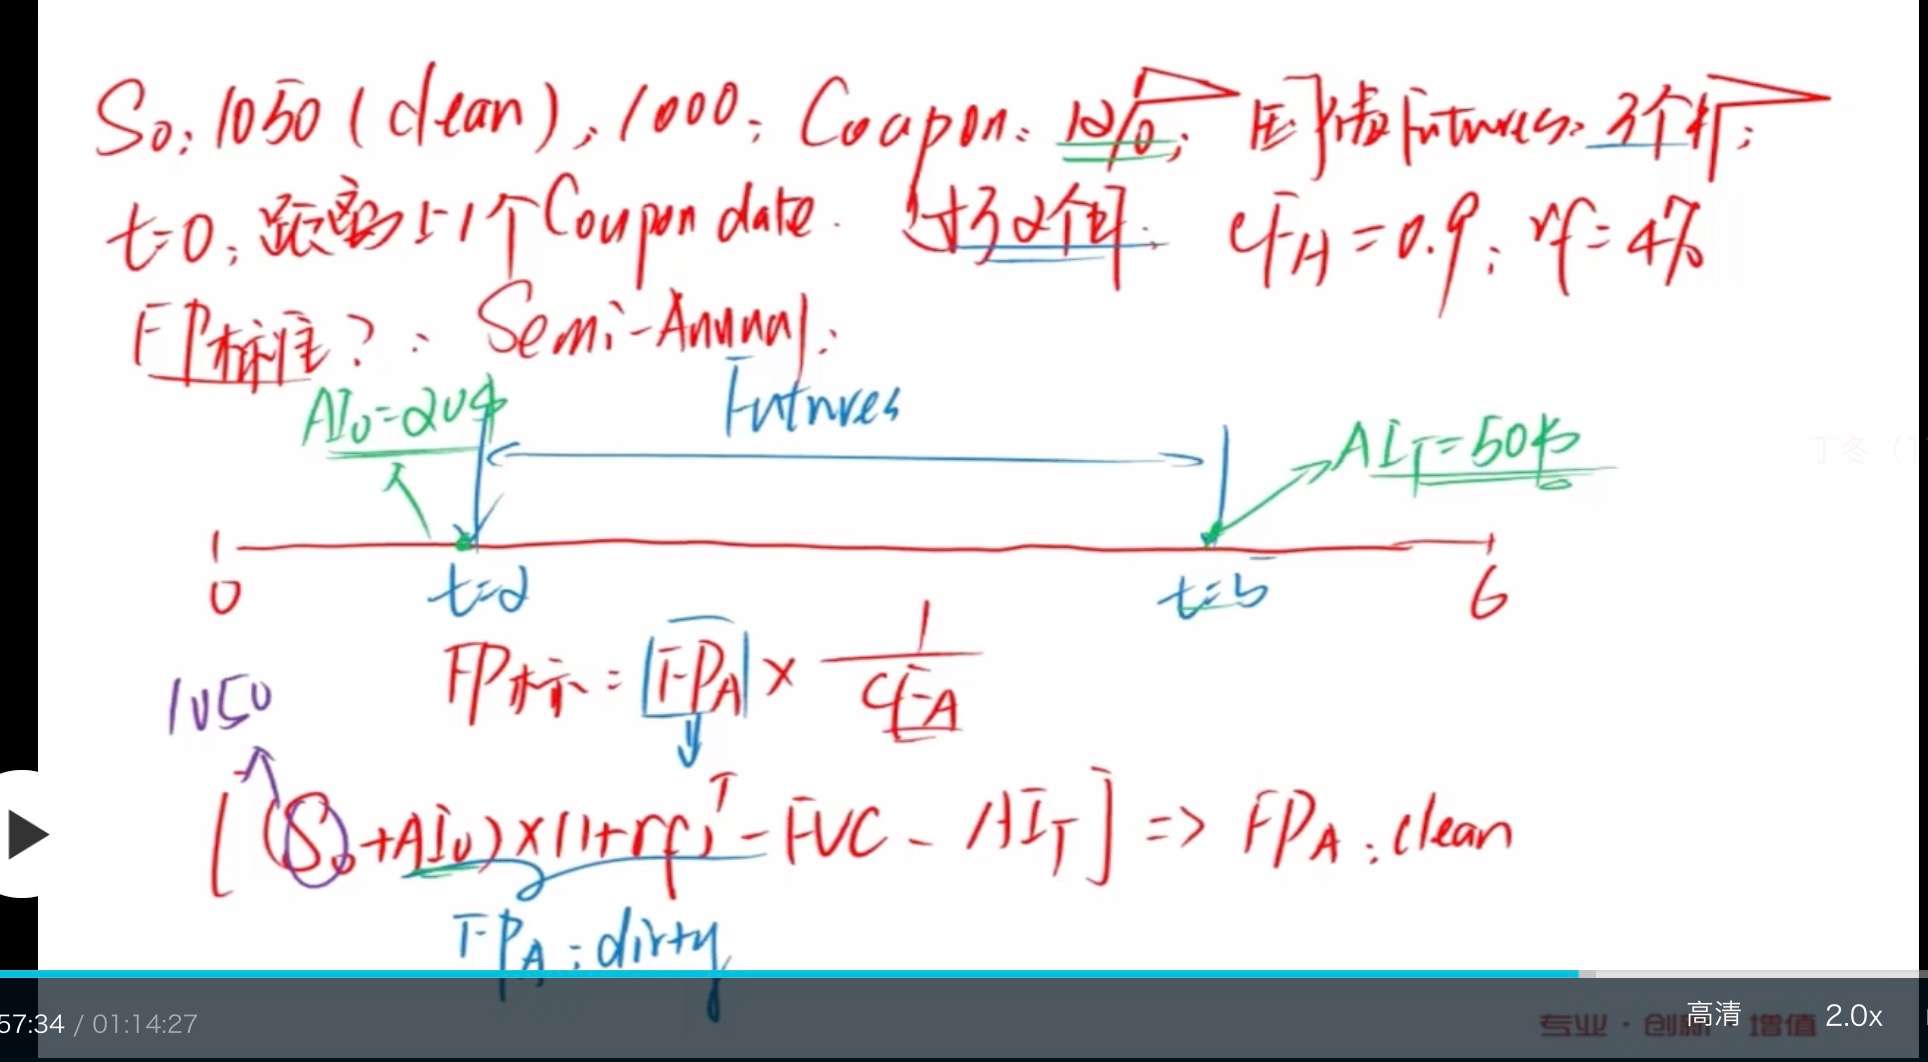 S₀: 1050 (clean), 1000; Coupon: 12%; 国债Futures: 3个月;
t=0; 距离上1个Coupon date. 过了2个月. CF_A = 0.9; rf = 4%
FP标准?: Semi-Annual.
AI₀=20 Futures AI_T=50
0 t=2 t=5 6
FP标 = FP_A × 1/CF_A
1050
[(S₀+AI₀)×(1+rf)^T - FVC - AI_T] => FP_A: clean
FP_A: dirty
57:34 / 01:14:27 专业·创新 增值 高清 2.0x